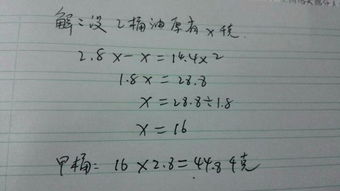 解:设乙桶油原有x千克
2.8x-x=14.4×2
1.8x=28.8
x=28.8÷1.8
x=16
甲桶:16×2.8=44.8千克